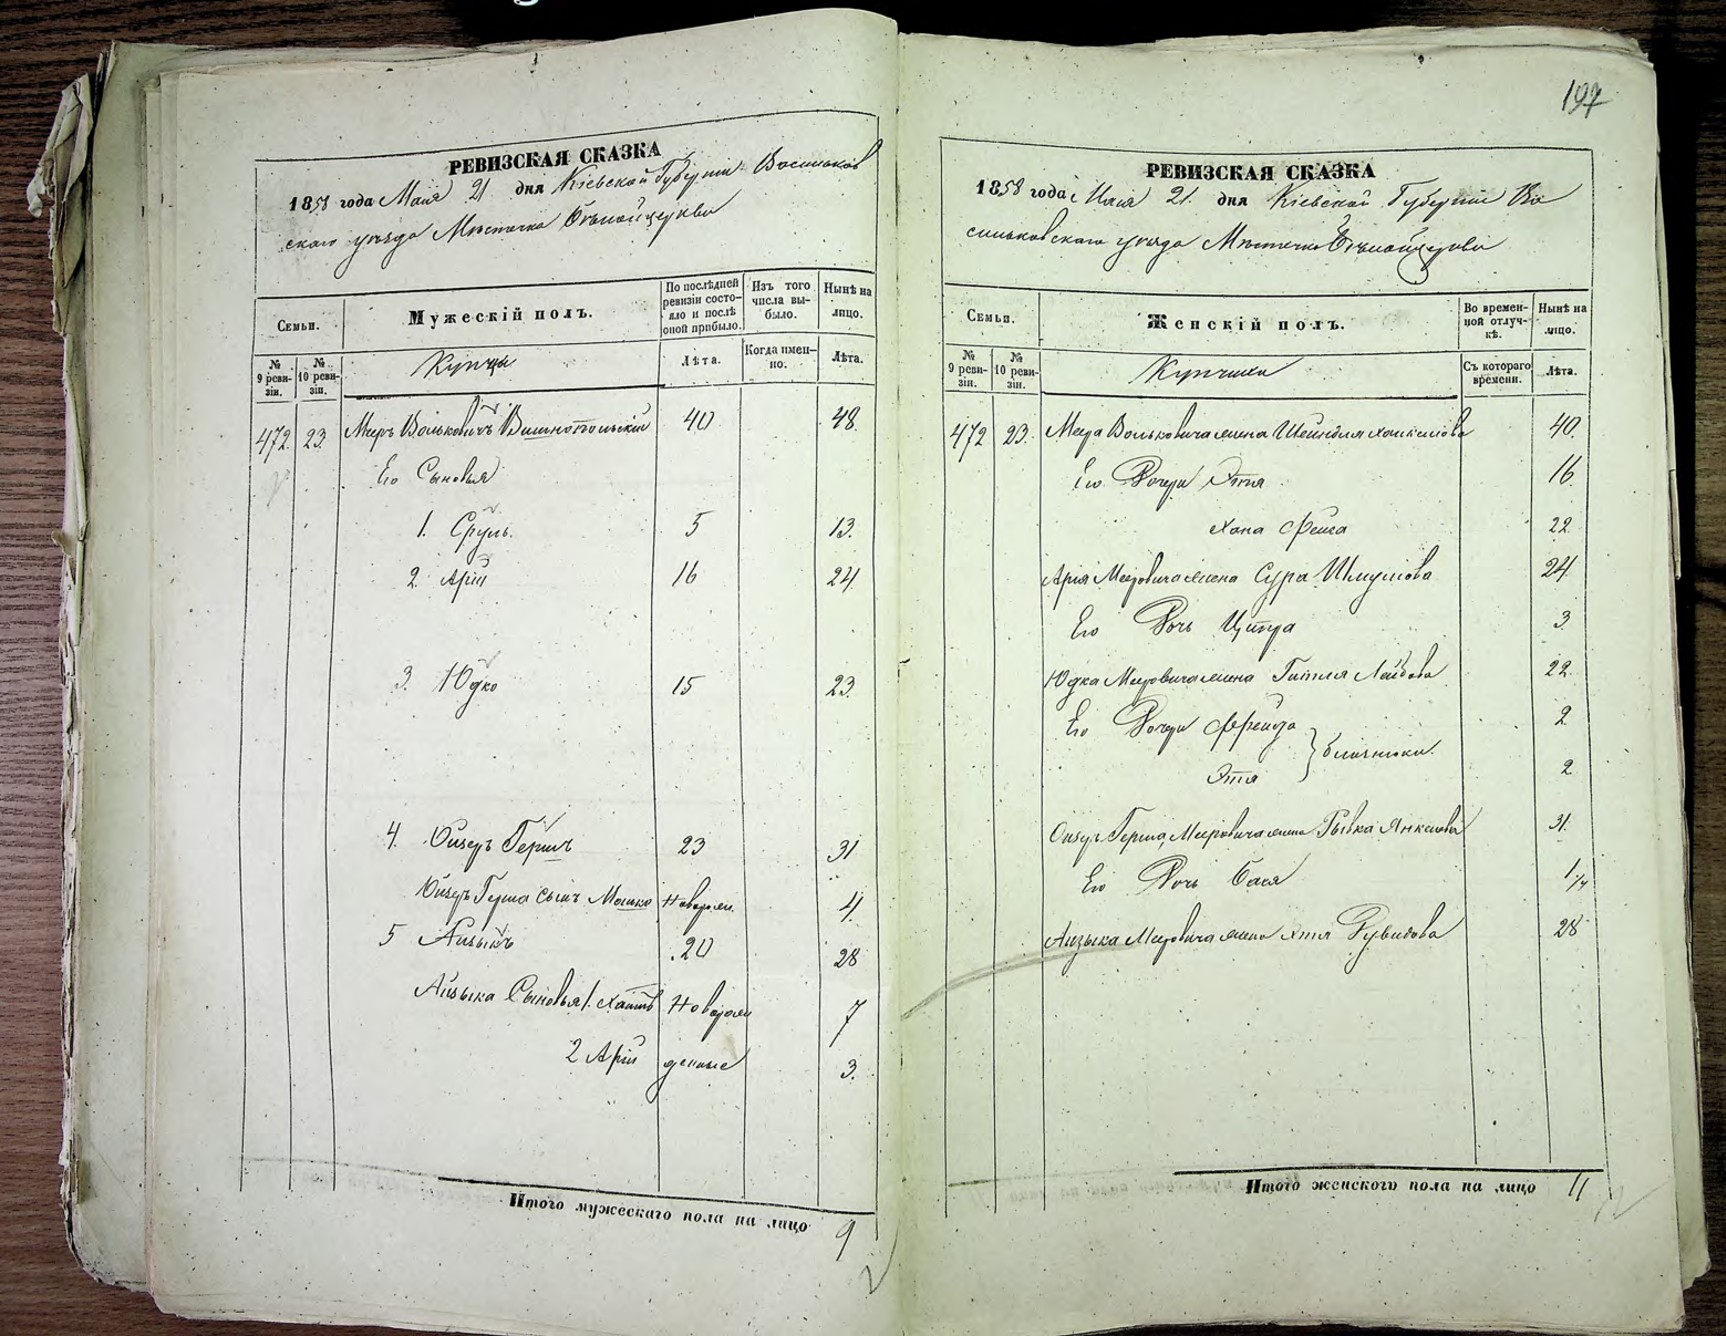 197
РЕВИЗСКАЯ СКАЗКА
1858 года Мая 21 дня Кіевской Губерніи Васильков
скаго уѣзда Мѣстечка Бѣлойцеркви
Семьи.
Мужескій полъ.
По послѣдней ревизіи состо-
яло и послѣ
оной прибыло.
Изъ того
числа вы-
было.
Нынѣ на
лицо.
№
9 реви-
зіи.
№
10 реви-
зіи.
Купцы
Лѣта.
Когда имен-
но.
Лѣта.
472 23 Меиръ Вольковичъ 40 48.
Его Сыновья
1. Сруль. 5 13.
2 Арій 16 24
3. Юдко 15 23.
4. Ойзеръ Гершъ 23 31
Ойзеръ Герша сынъ Мошко Новорож. 4.
5 Айзыкъ 20 28
Айзыка Сыновья 1. Новорож 7
2 Арій денные 3.
Итого мужескаго пола на лицо 9
РЕВИЗСКАЯ СКАЗКА
1858 года Мая 21. дня Кіевской Губерніи Ва
сильковскаго уѣзда Мѣстечка Бѣлойцеркви
Семьи.
Женскій полъ.
Во времен-
ной отлуч-
кѣ.
Нынѣ на
лицо.
№
9 реви-
зіи.
№
10 реви-
зіи.
Съ котораго
времени.
Лѣта.
472 23. Меера Вольковича жена Шейндля 40.
Его Дочери Этля 16
Хана Фейга 22
Арія Меировича жена Сура Шмулова 24
Его Дочь Ципра 3
Юдка Меировича жена Гитля Лейбова 22
Его Дочери Фрейда 2
Этля } близнюки. 2
Ойзеръ Герша Меировича жена Рывка Янкелева 31.
Его Дочь Бася 1 1/4
Айзыка Меировича жена Рувинова 28
Итого женскаго пола на лицо 11